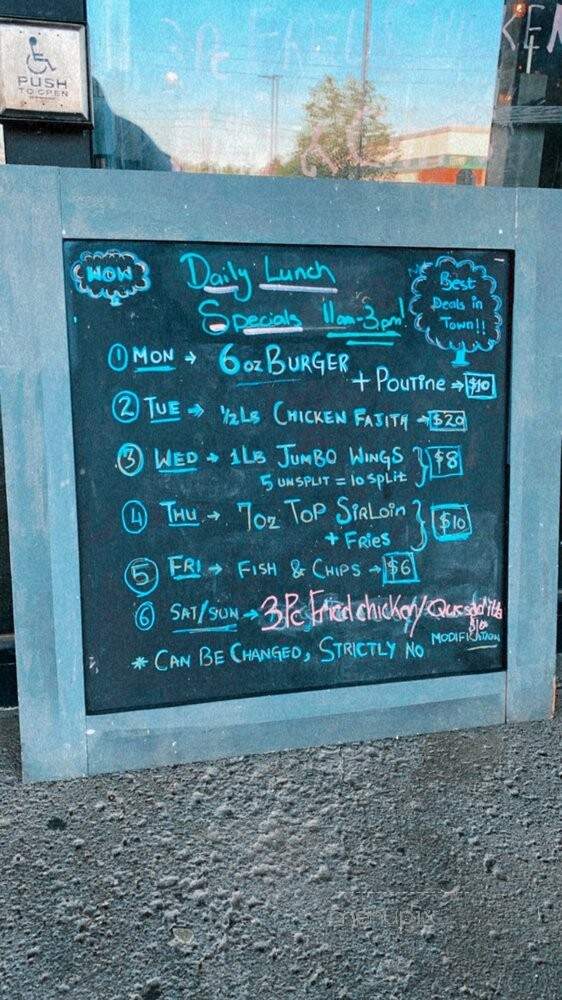 PUSH
TO OPEN
WOW
Daily Lunch
Specials 11am-3pm!
Best
Deals in
Town!!
① MON → 6oz BURGER
+ POUTINE → $10
② TUE → 1/2 LB CHICKEN FAJITA → $20
③ WED → 1LB JUMBO WINGS } $8
5 UNSPLIT = 10 SPLIT
④ THU → 7oz TOP SIRLOIN } $10
+ FRIES
⑤ FRI → FISH & CHIPS → $6
⑥ SAT/SUN → 3Pc Fried chicken/
* CAN BE CHANGED, STRICTLY NO MODIFICATION
menupix